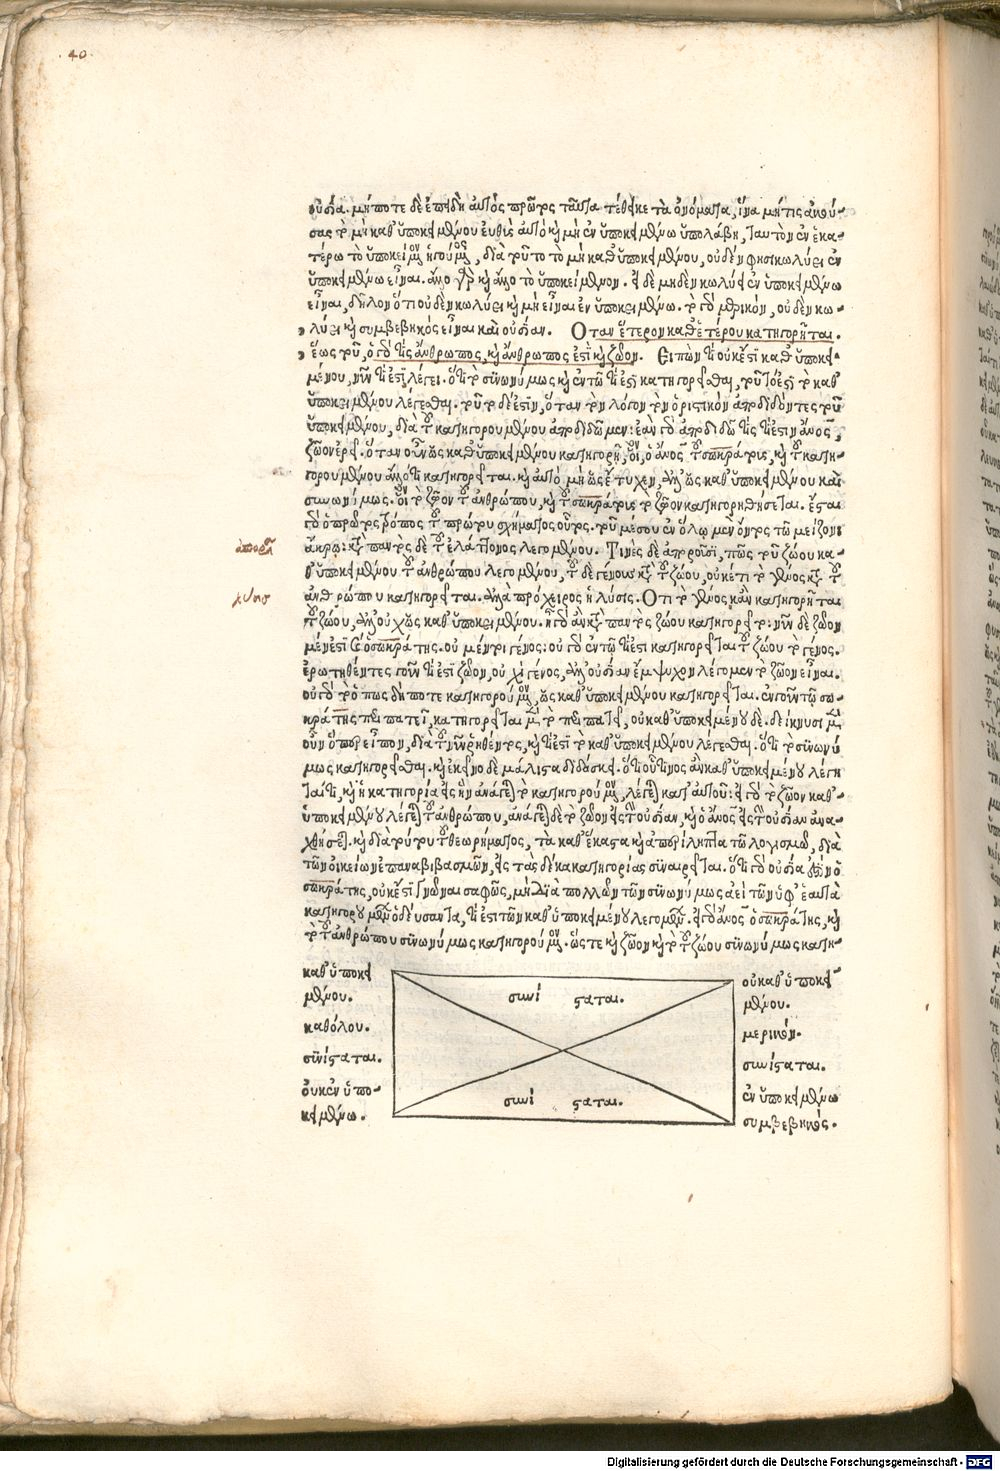 40
οὐσία. μήποτε δὲ ἐπειδὴ αὐτὸς πρῶτος ταῦτα τέθεικε τὰ ὀνόματα, ἵνα μή τις ἀκού-
σας τὸ μὴ καθ' ὑποκειμένου εὐθὺς αὐτὸ καὶ μὴ ἐν ὑποκειμένῳ ὑπολάβῃ, ταυτὸν ἐν ἑκα-
τέρῳ τὸ ὑποκείμενον ἡγούμενος, διὰ τοῦτο τὸ μὴ καθ' ὑποκειμένου, οὐδέν φησι κωλύει ἐν
ὑποκειμένῳ εἶναι. ἄλλο γὰρ καὶ ἄλλο τὸ ὑποκείμενον. εἰ δὲ μηδὲν κωλύει ἐν ὑποκειμένῳ
εἶναι, δῆλον ὅτι οὐδὲν κωλύει καὶ μὴ εἶναι ἐν ὑποκειμένῳ. τὸ γὰρ μερικὸν, οὐδὲν κω-
λύει καὶ συμβεβηκὸς εἶναι καὶ οὐσίαν. Ὅταν ἕτερον καθ' ἑτέρου κατηγορῆται.
ἕως τοῦ, ὁ γὰρ τὶς ἄνθρωπος, καὶ ἄνθρωπος ἐστὶ καὶ ζῶον. Εἰπὼν τί οὐκ ἔστι καθ' ὑποκει-
μένου, νῦν τί ἐστι, λέγει. ὅτι τὸ συνωνύμως καὶ ἐν τῷ τί ἐστι κατηγορεῖσθαι, τοῦτό ἐστι τὸ καθ'
ὑποκειμένου λέγεσθαι. τοῦτο δέ ἐστιν, ὅταν τὸν λόγον τὸν ὁριστικὸν ἀποδιδόντες τοῦ
ὑποκειμένου, διὰ τοῦ κατηγορουμένου ἀποδιδῶμεν: ἐὰν γὰρ ἀποδιδῷ τις τί ἐστιν ἄνος,
ζῶον ἐρεῖ. ὅταν οὖν ὡς καθ' ὑποκειμένου κατηγορῇ, οἷον, ὁ ἄνος τοῦ σωκράτους, καὶ τοῦ κατη-
γορουμένου ἄλλό τι κατηγορεῖται. καὶ αὐτὸ μὴ ὡς ἔτυχεν, ἀλλ' ὡς καθ' ὑποκειμένου καὶ
συνωνύμως. οἷον τὸ ζῶον τοῦ ἀνθρώπου, καὶ τοῦ σωκράτους τὸ ζῶον κατηγορηθήσεται. ἔσται
γὰρ ὁ πρῶτος τρόπος τοῦ πρώτου σχήματος οὗτος. τοῦ μέσου ἐν ὅλῳ μὲν ὄντος τῷ μείζονι
ἄκρῳ: κατὰ παντὸς δὲ τοῦ ἐλάττονος λεγομένου. Τινὲς δὲ ἀποροῦσι, πῶς τοῦ ζώου κα-
θ' ὑποκειμένου τοῦ ἀνθρώπου λεγομένου, τοῦ δὲ γένους κατὰ τοῦ ζώου, οὐκέτι τὸ γένος κατὰ τοῦ
ἀνθρώπου κατηγορεῖται. ἀλλὰ πρόχειρος ἡ λύσις. Ὅτι τὸ γένος κἂν κατηγορῆται
τοῦ ζώου, ἀλλ' οὐχ ὡς καθ' ὑποκειμένου. ἦ γὰρ ἂν κατὰ παντὸς ζώου κατηγορεῖτο: νῦν δὲ ζῶον
μέν ἐστι ὁ σωκράτης. οὐ μέντοι γένος: οὐ γὰρ ἐν τῷ τί ἐστι κατηγορεῖται τοῦ ζώου τὸ γένος.
ἐρωτηθέντες γοῦν τί ἐστι ζῶον, οὐχὶ γένος, ἀλλ' οὐσίαν ἔμψυχον λέγομεν τὸ ζῶον εἶναι.
οὐ γὰρ τὸ ὁπωσδήποτε κατηγορούμενον, ὡς καθ' ὑποκειμένου κατηγορεῖται. ἐν γοῦν τῷ σω-
κράτης περιπατεῖ, κατηγορεῖται μὲν τὸ περιπατεῖν, οὐ καθ' ὑποκειμένου δέ. δείκνυσι μὲν
οὖν ὅπερ εἶπον, διὰ τοῦ νῦν ῥηθέντος, καὶ τί ἐστι τὸ καθ' ὑποκειμένου λέγεσθαι. ὅτι τὸ συνωνύ
μως κατηγορεῖσθαι. καὶ ἐκεῖνο δὲ μάλιστα διδάσκει. ὅτι οὗτινος ἂν καθ' ὑποκειμένου λέγη
ται τι, καὶ ἡ κατηγορία εἰς ἣν ἀνάγεται τὸ κατηγορούμενον, λέγεται κατ' αὐτοῦ: εἰ γὰρ τὸ ζῶον καθ'
ὑποκειμένου λέγεται τοῦ ἀνθρώπου, ἀνάγεται δὲ τὸ ζῶον εἰς τὴν οὐσίαν, καὶ ὁ ἄνος εἰς τὴν οὐσίαν ἀνα-
χθήσεται. καὶ διὰ τούτου τοῦ θεωρήματος, τὰ καθ' ἕκαστα καὶ ἀπερίληπτα τῷ λογισμῷ, διὰ
τῶν οἰκείων ἐπαναβιβασμῶν, εἰς τὰς δέκα κατηγορίας συναιρεῖται. ὅτι γὰρ οὐσία ἐστὶν ὁ
σωκράτης, οὐκ ἔστι γνῶναι σαφῶς, μὴ διὰ πολλῶν τῶν συνωνύμως ἀεὶ τῶν ὑφ' ἑαυτὰ
κατηγορουμένων ὁδεύσαντα, τί ἐστι τῶν καθ' ὑποκειμένου λεγομένων. εἰ γὰρ ἄνος ὁ σωκράτης, καὶ
τὸ τοῦ ἀνθρώπου συνωνύμως κατηγορούμενον. ὥστε καὶ ζῶον καὶ τὸ τοῦ ζώου συνωνύμως κατη-
ἀπορία
λύσις
καθ' ὑποκει
μένου.
καθόλου.
συνίσταται.
οὐκ ἐν ὑπο-
κειμένῳ.
συνί σταται.
συνί σταται.
οὐ καθ' ὑποκει
μένου.
μερικόν.
συνίσταται.
ἐν ὑποκειμένῳ
συμβεβηκός.
Digitalisierung gefördert durch die Deutsche Forschungsgemeinschaft - DFG